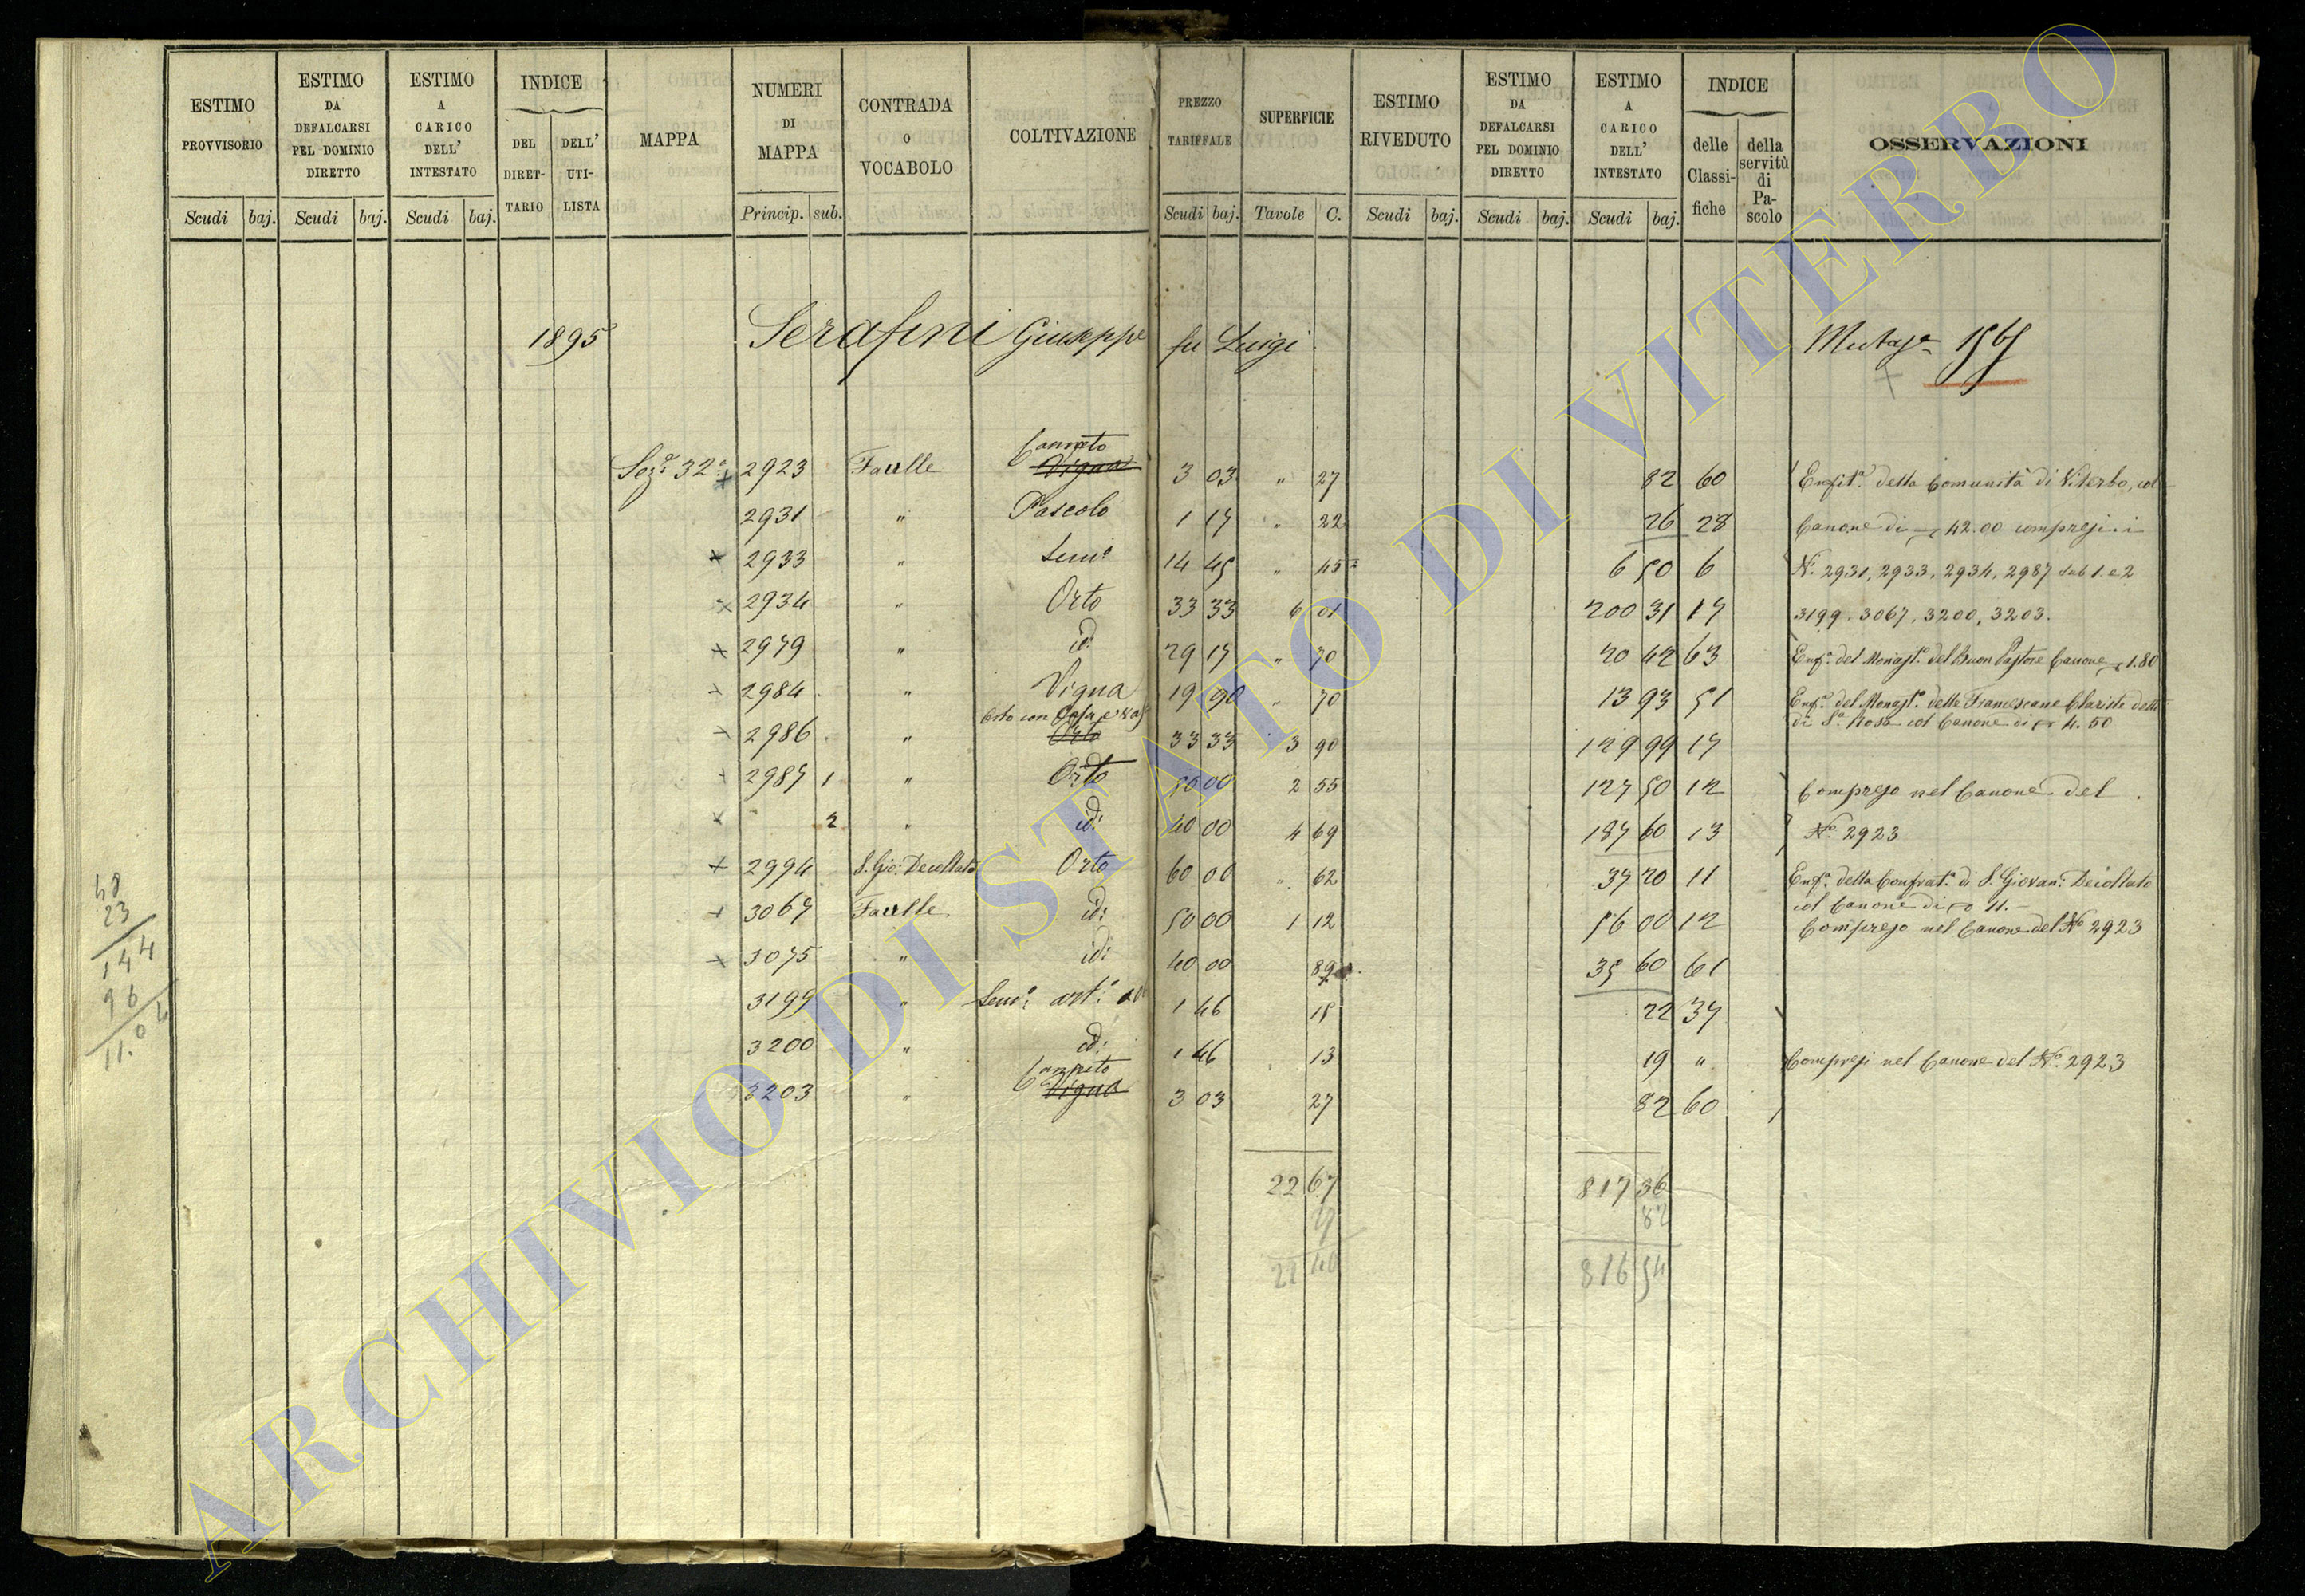 ESTIMO PROVVISORIO
ESTIMO DA DEFALCARSI PEL DOMINIO DIRETTO
ESTIMO A CARICO DELL' INTESTATO
INDICE
DEL DIRET-TARIO
DELL' UTI-LISTA
MAPPA
NUMERI DI MAPPA
CONTRADA O VOCABOLO
COLTIVAZIONE
PREZZO TARIFFALE
SUPERFICIE
ESTIMO RIVEDUTO
ESTIMO DA DEFALCARSI PEL DOMINIO DIRETTO
ESTIMO A CARICO DELL' INTESTATO
INDICE
delle Classi-fiche
della servitù di Pa-scolo
OSSERVAZIONI
Scudi baj. Scudi baj. Scudi baj. Princip. sub. Scudi baj. Tavole C. Scudi baj. Scudi baj. Scudi baj.
1895 Serafini Giuseppe fu Luigi
Sez.e 32a 2923 Faulle Canneto Vigna 3 03 " 27 82 60 Enfit.a della Comunità di Viterbo, col
2931 " Pascolo 1 17 " 22 26 28 Canone di 42.00 compresi i
2933 " Sem.o 14 45 " 45 6 50 6 N. 2931, 2933, 2934, 2987 sub 1. e 2
2934 " Orto 33 33 6 01 200 31 17 3199. 3067, 3200, 3203.
2979 " id. 29 17 " 70 20 42 63 Enf.a del Monast.o del Buon Pastore Canone 1.80
2984 " Vigna 19 90 " 70 13 93 51 Enf.a del Monast.o delle Francescane Clarisse dette
di S.a Rosa col Canone di 4.50
2986 " Orto con Casa Orto 33 33 3 90 129 99 17
2987 1 " Orto 50 00 2 55 127 50 12 Compreso nel Canone del
2 " id: 40 00 4 69 187 60 13 No. 2923
2994 S. Gio: Decollato Orto 60 00 " 62 37 20 11 Enf.a della Confrat.a di S. Giovan: Decollato
col Canone di 11.-
3067 Faulle id: 50 00 1 12 56 00 12 Compreso nel Canone del No 2923
3075 " id: 40 00 89 35 60 61
3199 " Sem.o art.o 1 46 15 22 37
3200 " id: 1 46 13 19 " Compresi nel Canone del No. 2923
3203 " Canneto Vigna 3 03 27 82 60
22 67 817 36
82
22 40 816 54
48
23
144
96
11.04
ARCHIVIO DI STATO DI VITERBO